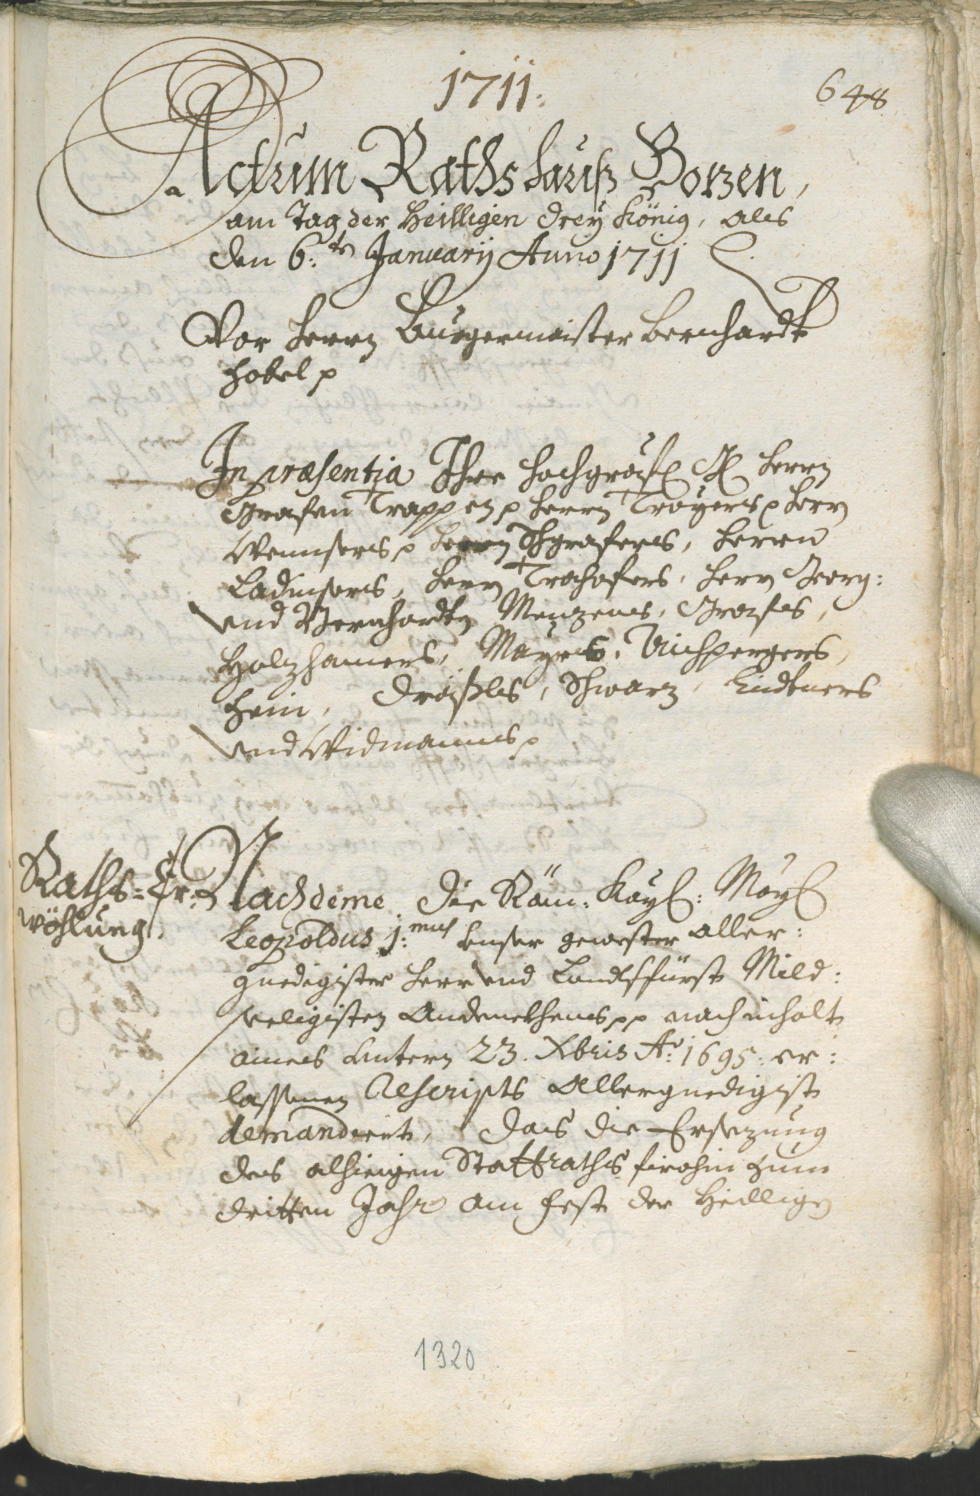 1711.
648
Actum Rathshauß Bozen,
am Tag der Heilligen Drey König, als
den 6.ten Januarij Anno 1711
Vor Herrn Burgermaister Bernhardt
Hobel p
In præsentia Ihre Hochgräfl. Herrn
Grafen Trappen p Herrn Troyers p Herrn
Wennsers p Herrn Schgrafers, Herrn
Ladinsers, Herrn Trohofers, Herrn Georg:
und Bernhardtn Menzens, Gräsls,
Holzhamers, Mayrs, Aichpergers,
Hein, Dräxls, Schwarz, Lindtners
und Widmanns p
Raths=Er-
wöhlung.
Nachdeme die Röm: Kayl: Mayl
Leopoldus 1.mus Unser gewester aller:
gnedigister Herr und Landtsfürst Mild:
seeligisten Andenckhens pp nach inhalt
aines untern 23. Xbris Ao: 1695. er:
lassenen Rescripts Allergnedigist
demandiert, das die Ersezung
des alhieigen Stattraths firohin zum
dritten Jahr am Fest der Heilligen
1320